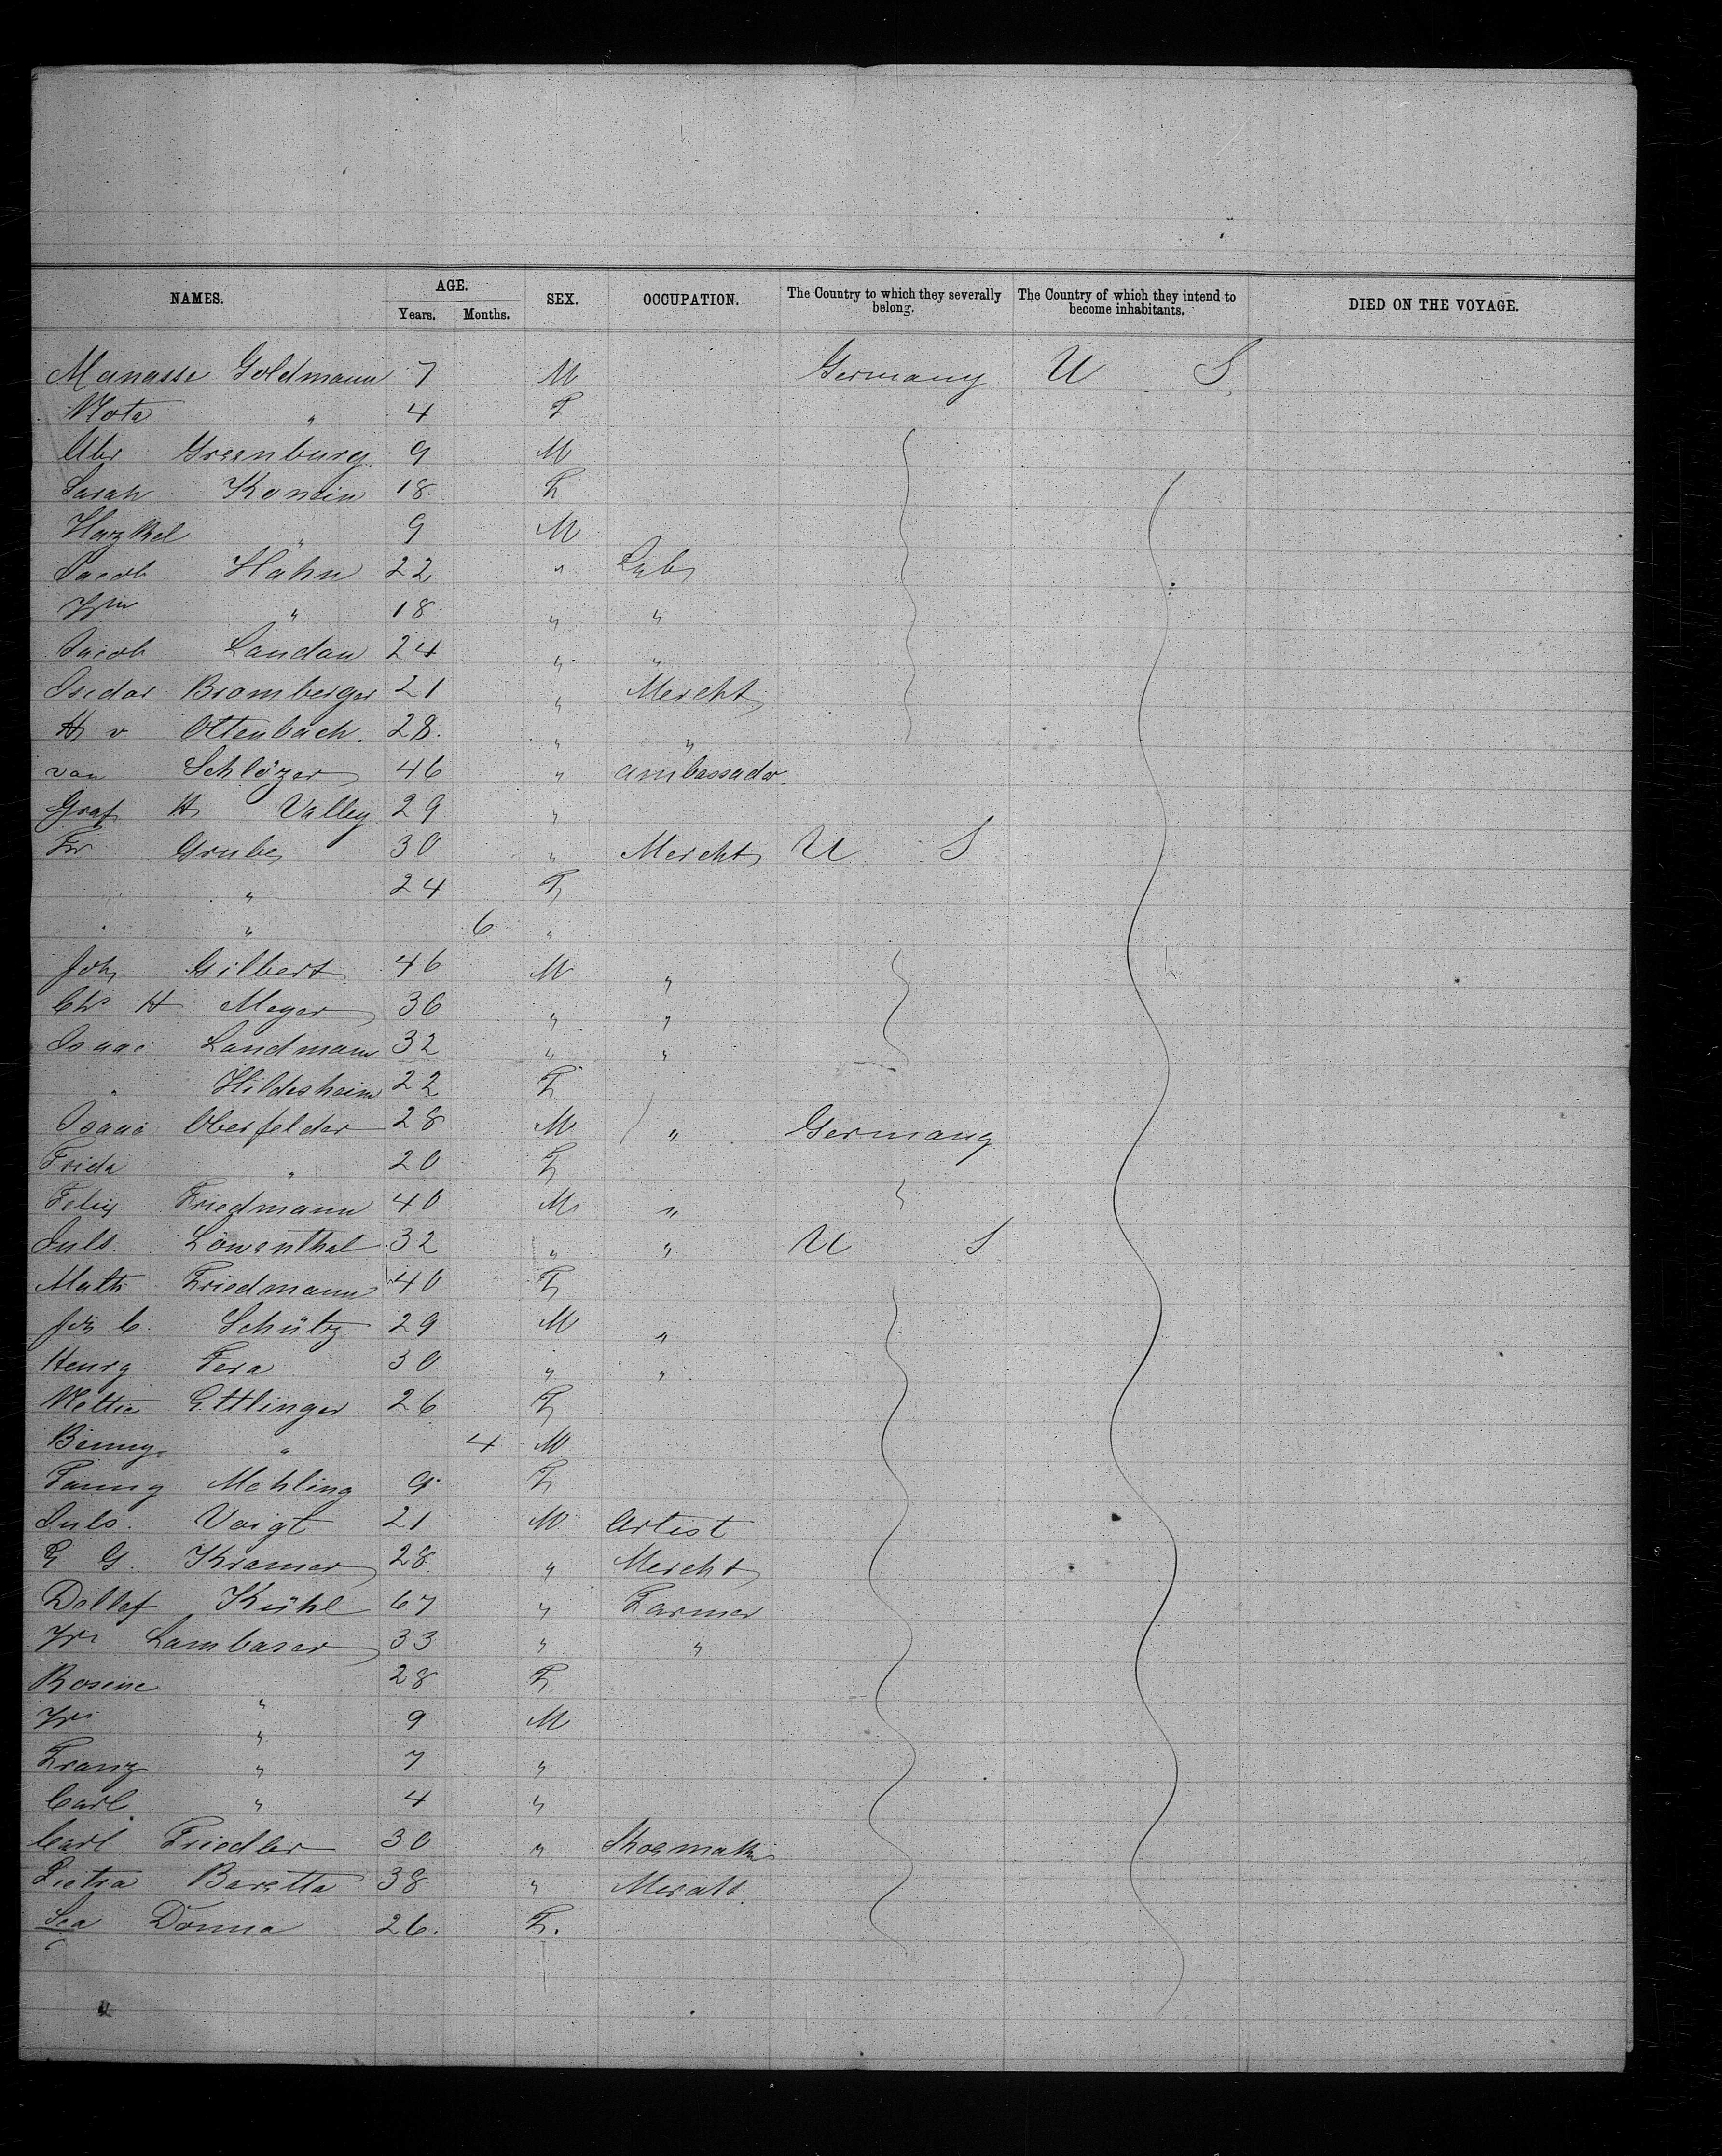 NAMES. AGE. Years. Months. SEX. OCCUPATION. The Country to which they severally belong. The Country of which they intend to become inhabitants. DIED ON THE VOYAGE.
Manasse Goldmann 7 M Germany U S
Nota " 4 F
Abr Greenburg. 9 M
Sarah Konin 18 F
Hazkel " 9 M
Jacob Hahn 22 " Lab
Wm " 18 " "
Jacob Landau 24 " "
Isidor Bromberger 21 " Mercht
H v Ottenbach. 28. " "
van Schlözer 46 " ambassador.
Graf H Valley 29 "
Fr Grube 30 " Mercht U S
" 24 F
" " 6 "
Joh Gilbert 46 M "
Chs H Meyer 36 " "
Isaac Landmann 32 " "
" Hildesheim 22 F
Isaac Oberfelder 28 M " Germany
Frida " 20 F
Felix Friedmann 40 M "
Juls. Löwenthal 32 " " U S
Math Friedmann 40 F
Joh C. Schütz 29 M "
Henry Fera 30 " "
Nettie Ettlinger 26 F
Benny " 4 M
Fanny Mehling 9 F
Juls. Voigt 21 M Artist
E G. Kramer 28 " Mercht
Detlef Kühl 67 " Farmer
Lambaser 33 " "
Rosine " 28 F
" 9 M
Franz " 7 "
Carl " 4 "
Carl Friedler 30 " Shoemak
Pietra Baretta 38 "
Lea Donna 26. F.